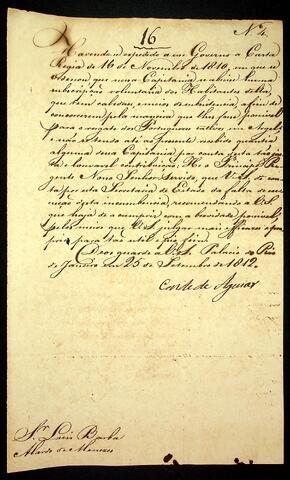 16
Nº 4.
Havendo-se expedido a esse Governo a Carta
Regia de 16 de Novembro de 1810, em que se
nessa Capitania se abrir huma
subscripção voluntaria dos Habitantes della,
que tem cabedaes, e meios de subsistencia, afim de
concorrerem pela maneira que lhes fosse possivel
para o resgate dos Portuguezes cativos em Argel;
e não se tendo até ao presente recebido quantia
alguma dessa Capitania por conta desta tão
e louvavel contribuição: He o Principe Re-
gente Nosso Senhor Servido, que V. S. dê con-
ta por esta Secretaria de Estado da falta de exe-
cução desta incumbencia, recommendando a V. S.
que haja de a cumprir com a brevidade possivel,
pelos meios que V. S. julgar mais efficazes e
para tão util e pio fim.
Deos guarde a V. S. Palacio do Rio
de Janeiro em 25 de Setembro de 1812.
Conde de Aguiar
Sr. Luis Barba
Alardo de Menezes